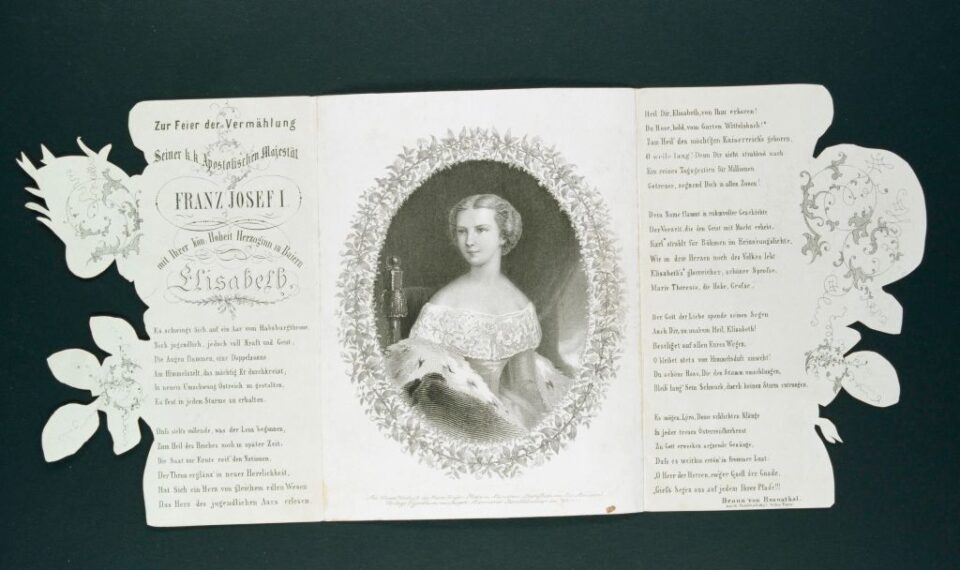 Zur Feier der Vermählung
Seiner k. k. Apostolischen Majestät
FRANZ JOSEF I
mit Ihrer kön. Hoheit Herzoginn in Baiern
Elisabeth.
Es schwingt sich auf ein Aar vom Habsburgthrone
Noch jugendlich, jedoch voll Kraft und Geist,
Die Augen flammen, eine Doppelsonne
Am Himmelszelt, das mächtig Er durchkreist,
In neuen Umschwung Östreich zu gestalten,
Es fest in jedem Sturme zu erhalten.
Daß sich's vollende, was der Leu begonnen,
Zum Heil des Reiches noch in später Zeit;
Die Saat zur Ernte reif den Nationen,
Der Thron erglänz' in neuer Herrlichkeit,
Hat Sich ein Herz von gleichem edlen Wesen
Das Herz des jugendlichen Aars erlesen.
Heil Dir, Elisabeth, von Ihm erkoren!
Du Rose, hold, vom Garten Wittelsbach!
Zum Heil des mächt'gen Kaiserreichs geboren,
O weile lang! Denn Dir zieht strahlend nach
Ein reines Tagsgestirn für Millionen
Getreuer, segnend Dich in allen Zonen!
Dein Name flammt in ruhmvoller Geschichte
Der Vorzeit, die den Geist mit Macht erhebt.
strahlt für Böhmen im Erinnrungslichte,
Wie in dem Herzen noch des Volkes lebt
Elisabeth's glorreicher, schöner Sprosse,
Marie Therese, die Hohe, Große.
Der Gott der Liebe spende seinen Segen
Auch Dir, zu unsrem Heil, Elisabeth!
Beseliget auf allen Euren Wegen,
O bleibet stets von Himmelsduft umweht!
Du schöne Rose, Die den Stamm umschlungen,
Bleib lang' Sein Schmuck, durch keinen Sturm
Es mögen, Lyra, Deine schlichten Klänge
In jeder treuen Österreicherbrust
Zu Gott erwecken segnende Gesänge,
Daß es weithin ertön' in frommer Lust:
„O Herr der Herzen, ew'ger Quell der Gnade,
„Gieß Segen aus auf jedem Ihrer Pfade!!!
Bruna von Rosenthal.